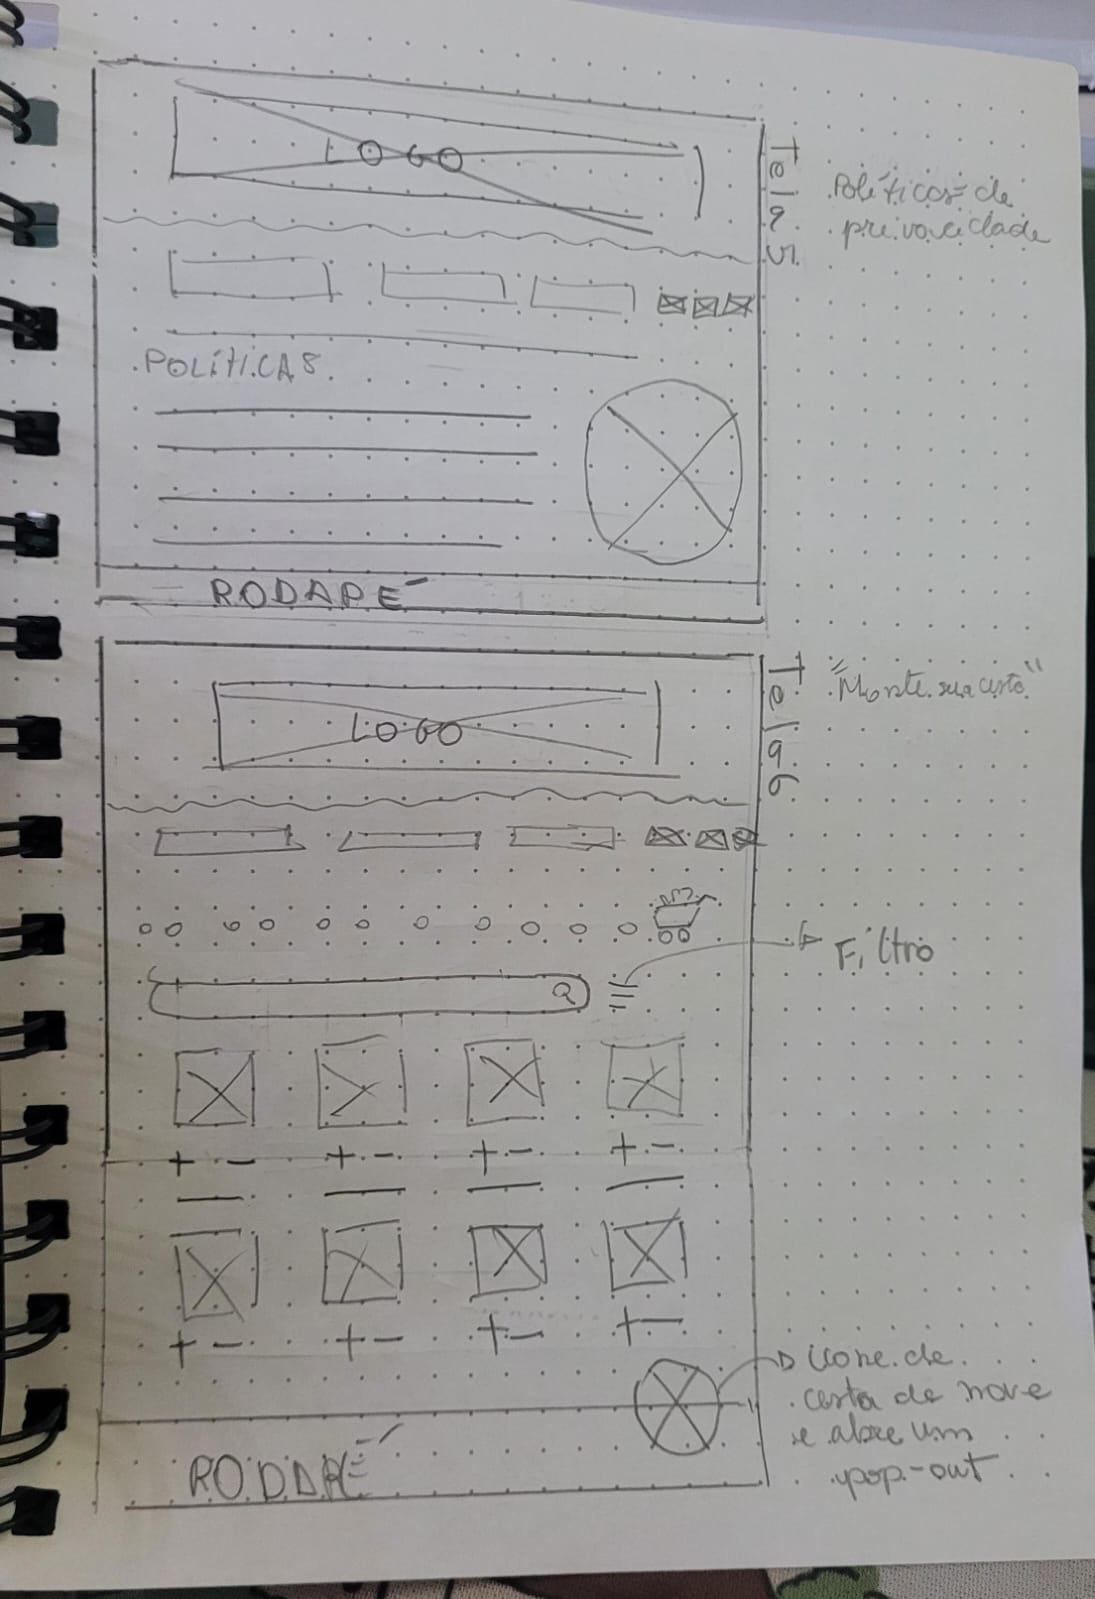 LOGO
Tela 5
Políticas de
privacidade
POLÍTICAS
RODAPÉ
LOGO
Tela 6
"Monte sua cesta"
Filtro
+ - + - + - + -
+ - + - + - + -
icone de
cesta de move
e abre um
pop-out
RODAPÉ